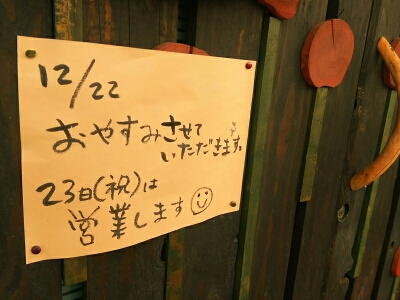 12/22
おやすみさせて
いただきます。
23日(祝)は
営業します